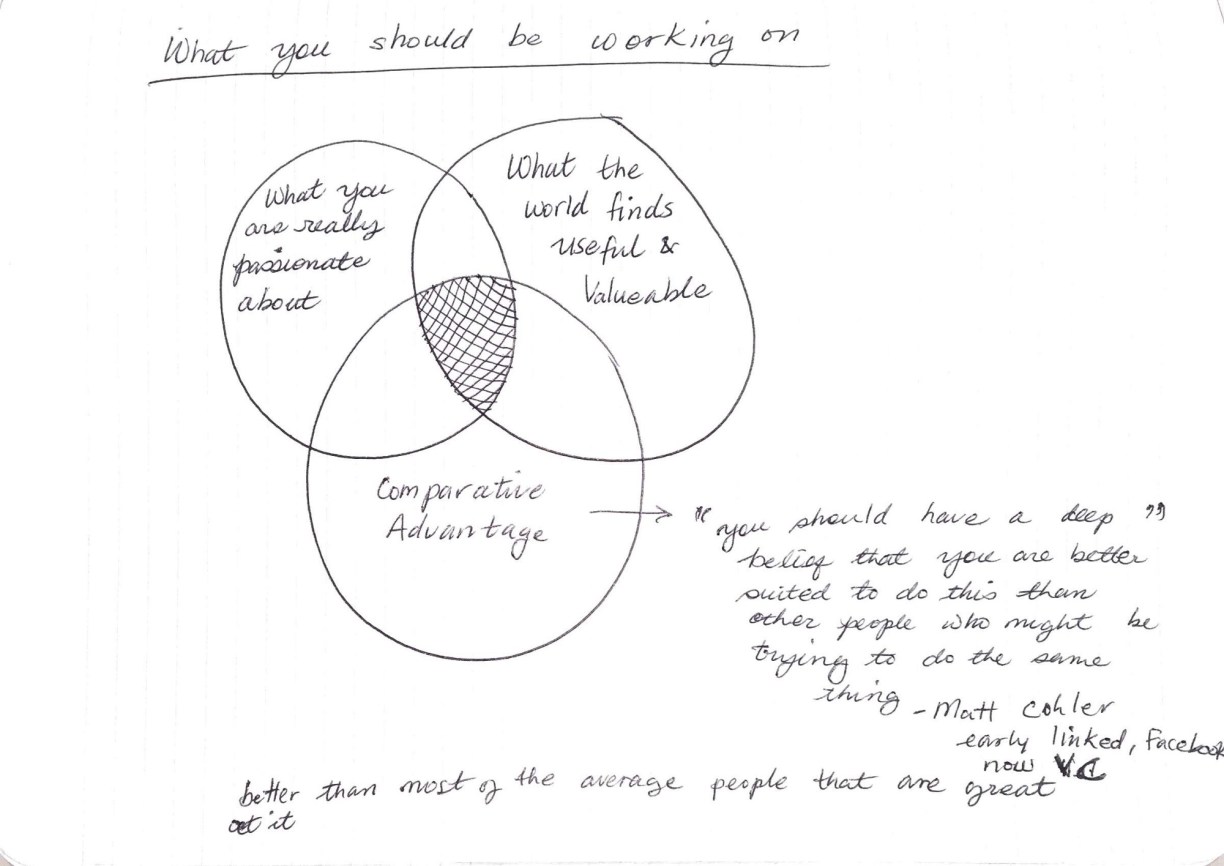 What you should be working on
What you
are really
passionate
about
What the
world finds
useful &
Valueable
Comparative
Advantage
"you should have a deep "
belief that you are better
suited to do this than
other people who might be
trying to do the same
thing
- Matt Cohler
early linked, Facebook
now VC
better than most of the average people that are great
at it